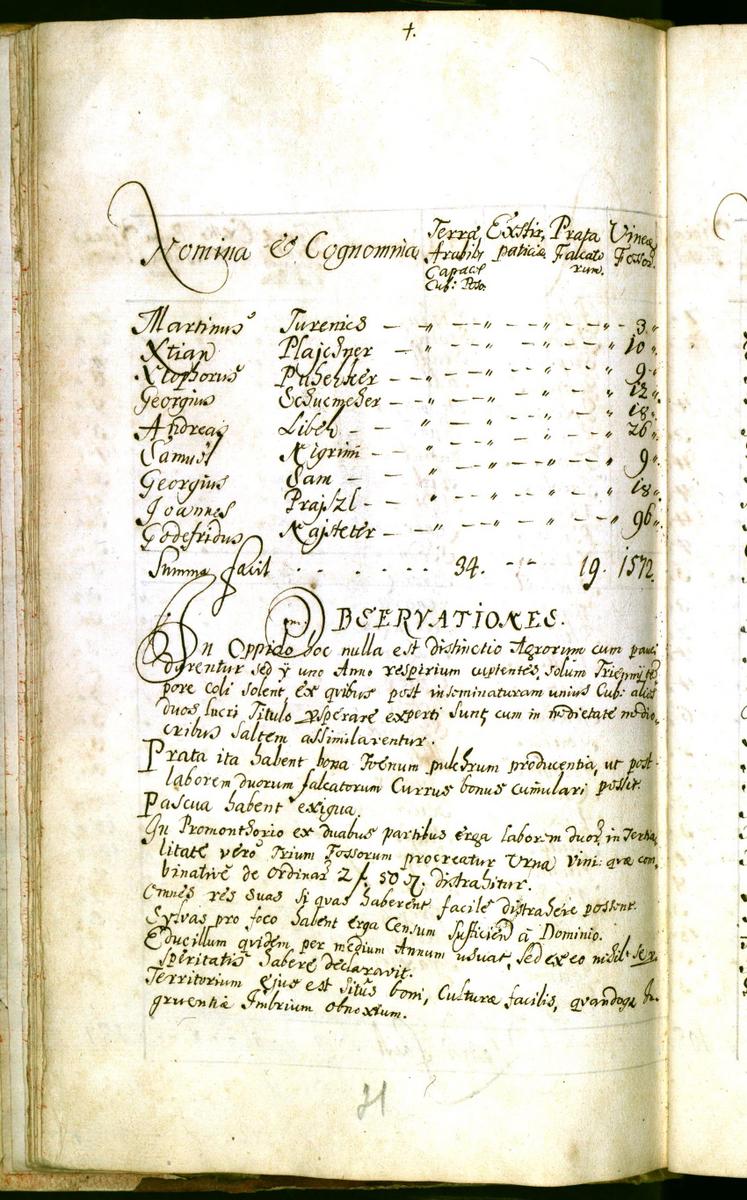 †.
Nomina & Cognomina Terræ Arabilis Capacit Cub: Poson. Exstirpaticiæ Prata Falcatorum. Vineæ Fossor.
Martinus Turenics — „ — „ — „ — 3 „
Xtian Plajchner — „ — „ — „ — 10 „
Xtophorus — „ — „ — „ — 9 „
Georgius Schucmeher — „ — „ — „ — 12 „
Andreas Libeh — „ — „ — „ — 18 „
Samuel Nigrini — „ — „ — „ — 26 „
Georgius Sam — „ — „ — „ — 9 „
Joannes Prajszl — „ — „ — „ — 18 „
Godefridus Najsteter — „ — „ — „ — 96 „
Summa facit . . . . . . 34. - - 19. 1572.
OBSERVATIONES.
In Oppido hoc nulla est distinctio Agrorum cum pauci
darentur sed y uno Anno respirium cuptentes, solum Triennij tem
pore coli solent, ex quibus post inseminaturam unius Cub: alios
duos lucri Titulo sperare experti sunt, cum in medietate medio,
cribus saltem assimilarentur.
Prata ita habent bona Foenum pulchrum producentia, ut post
laborem duorum falcatorum Currus bonus cumulari possit.
Pascua habent exigua.
In Promonthorio ex duabus partibus erga laborem duor, in Tertia,
litate vero Trium Fossorum procreatur Urna Vini: quæ com,
binative de ordinar 2 f. 50 d. distrahitur.
Omnes res suas si quas haberent facile distrahere possent.
Sylvas pro foco habent erga Censum sufficien̄ à Dominio.
Educillum quidem per medium Annum usuat, sed ex eo nihil se pro,
speritatis habere declaravit.
Territorium ejus est situs boni, Culturæ facilis, quandoque In,
gruentiæ Imbrium obnoxium.
21